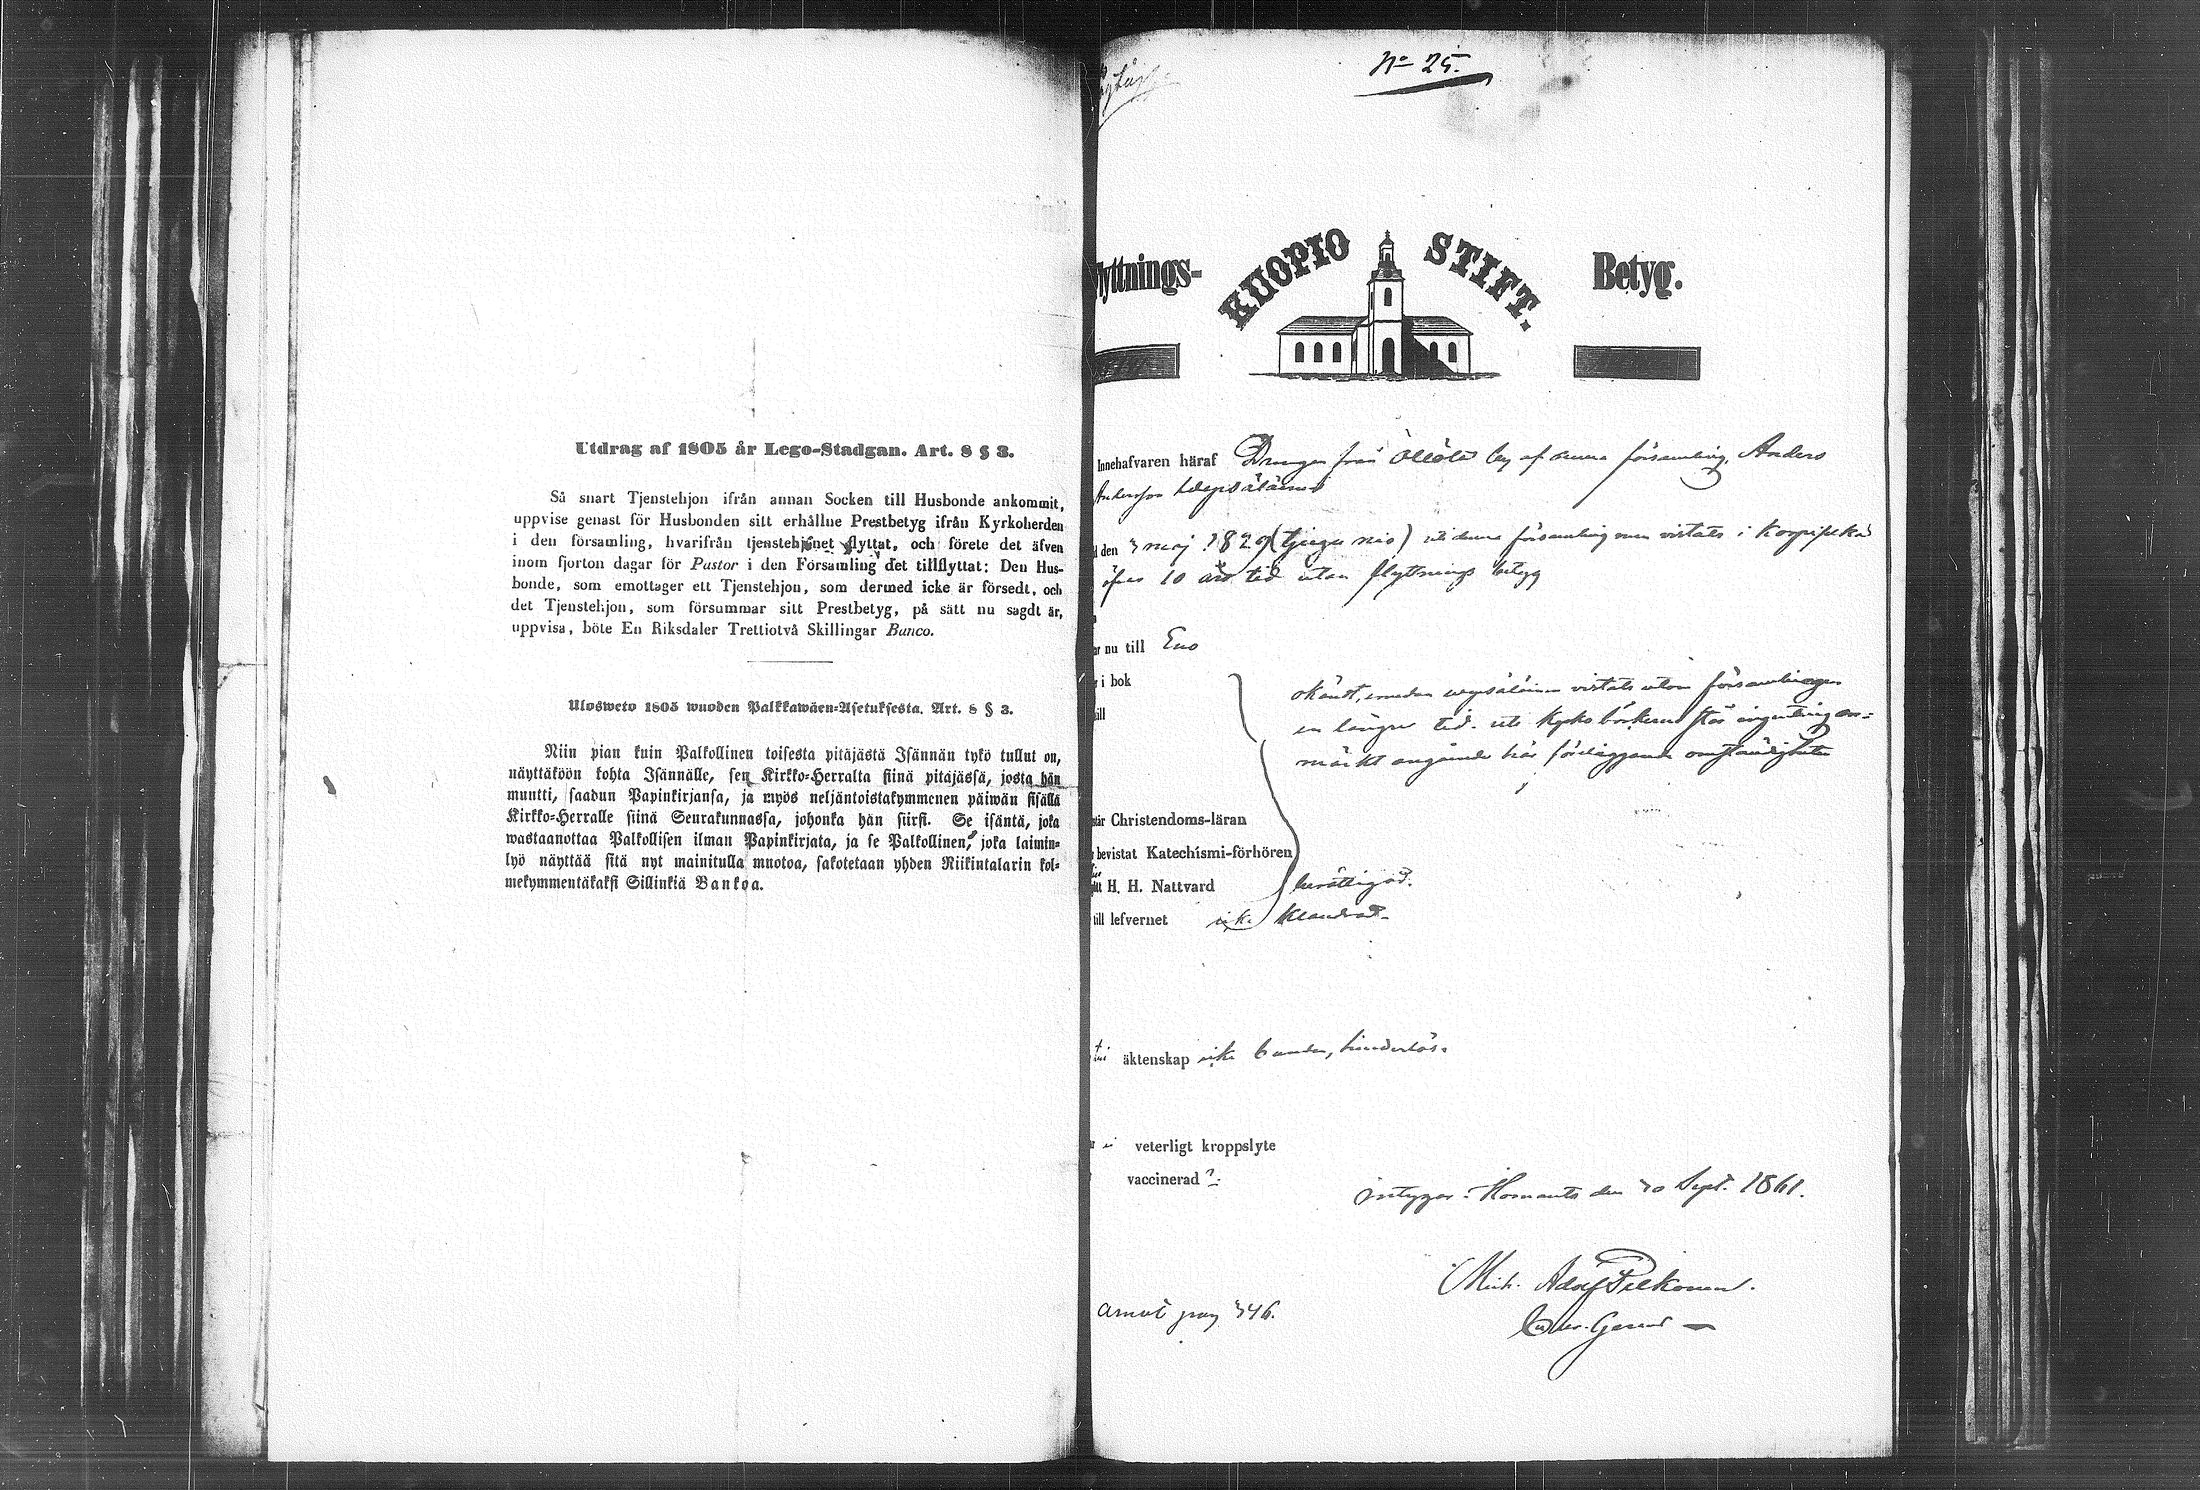 Utdrag af 1805 år Lego-Stadgan. Art. 8 § 3.
Så snart Tjenstehjon ifrån annan Socken till Husbonde ankommit,
uppvise genast för Husbonden sitt erhållne Prestbetyg ifrån Kyrkoherden
i den församling, hvarifrån tjenstehjonet flyttat, och förete det äfven
inom fjorton dagar för Pastor i den Församling det tillflyttat: Den Hus-
bonde, som emottager ett Tjenstehjon, som dermed icke är försedt, och
det Tjenstehjon, som försummar sitt Prestbetyg, på sätt nu sagdt är,
uppvisa, böte En Riksdaler Trettiotvå Skillingar Banco.
Ulosweto 1805 wuoden Palkkawäen-Asetuksesta. Art. 8 § 3.
Niin pian kuin Palkollinen toisesta pitäjästä Isännän tykö tullut on,
näyttäköön kohta Isännälle, sen Kirkko-Herralta siinä pitäjässä, josta hän
muutti, saadun Papinkirjansa, ja myös neljäntoistakymmenen päiwän sisällä
Kirkko-Herralle siinä Seurakunnassa, johonka hän siirsi. Se isäntä, joka
wastaanottaa Palkollisen ilman Papinkirjata, ja se Palkollinen, joka laimin-
lyö näyttää sitä nyt mainitulla muotoa, sakotetaan yhden Riikintalarin kol-
mekymmentäkaksi Sillinkiä Bankoa.
No 25.
flyttnings- KUOPIO STIFT. Betyg.
Innehafvaren häraf Drengen från by af denna församling, Anders
Andersson
den 3 maj 1829 (tjugu nio) i denna församling men vistats i
öfver 10 års tid utan flyttnings betyg
nu till Eno
i bok
okändt, emedan vistats utom församlingen
till
en längre tid. uti Kyrko böckerna står ingenting an=
märkt angående här föreliggande omständigheter
Christendoms-läran
bevistat Katechismi-förhören
H. H. Nattvard berättigad.
till lefvernet icke klandrad.
äktenskap icke bunden, hinderlös.
ej veterligt kroppslyte
vaccinerad ?
intygar i Ilomants den 30 Sept. 1861.
Mich. Adolf Pelkonen.
pag 346.